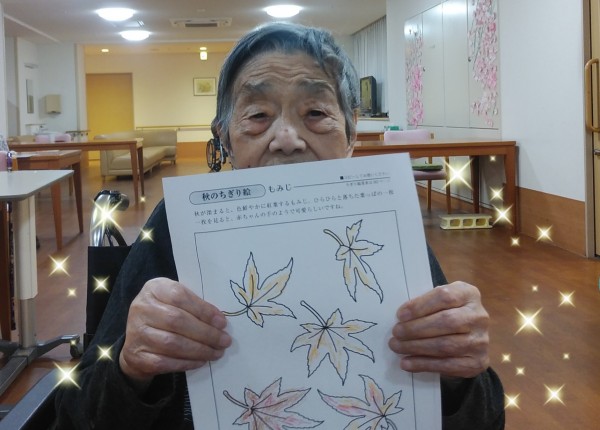 秋のちぎり絵 もみじ
秋が深まると、色鮮やかに紅葉するもみじ。ひらひらと落ちた葉っぱの一枚
一枚を見ると、赤ちゃんの手のようで可愛らしいですね。